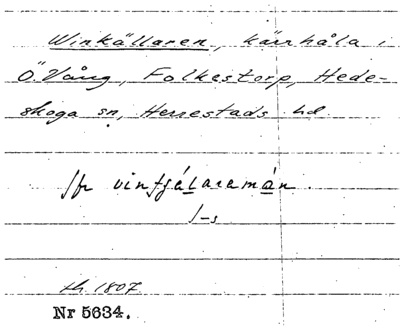 Winkällaren, kärrhåla i
Ö. Vång, Folkestorp, Hede-
skoga sn, Herrestads hd.
Jfr vintjälaremán.
J-s
1807
Nr 5634.